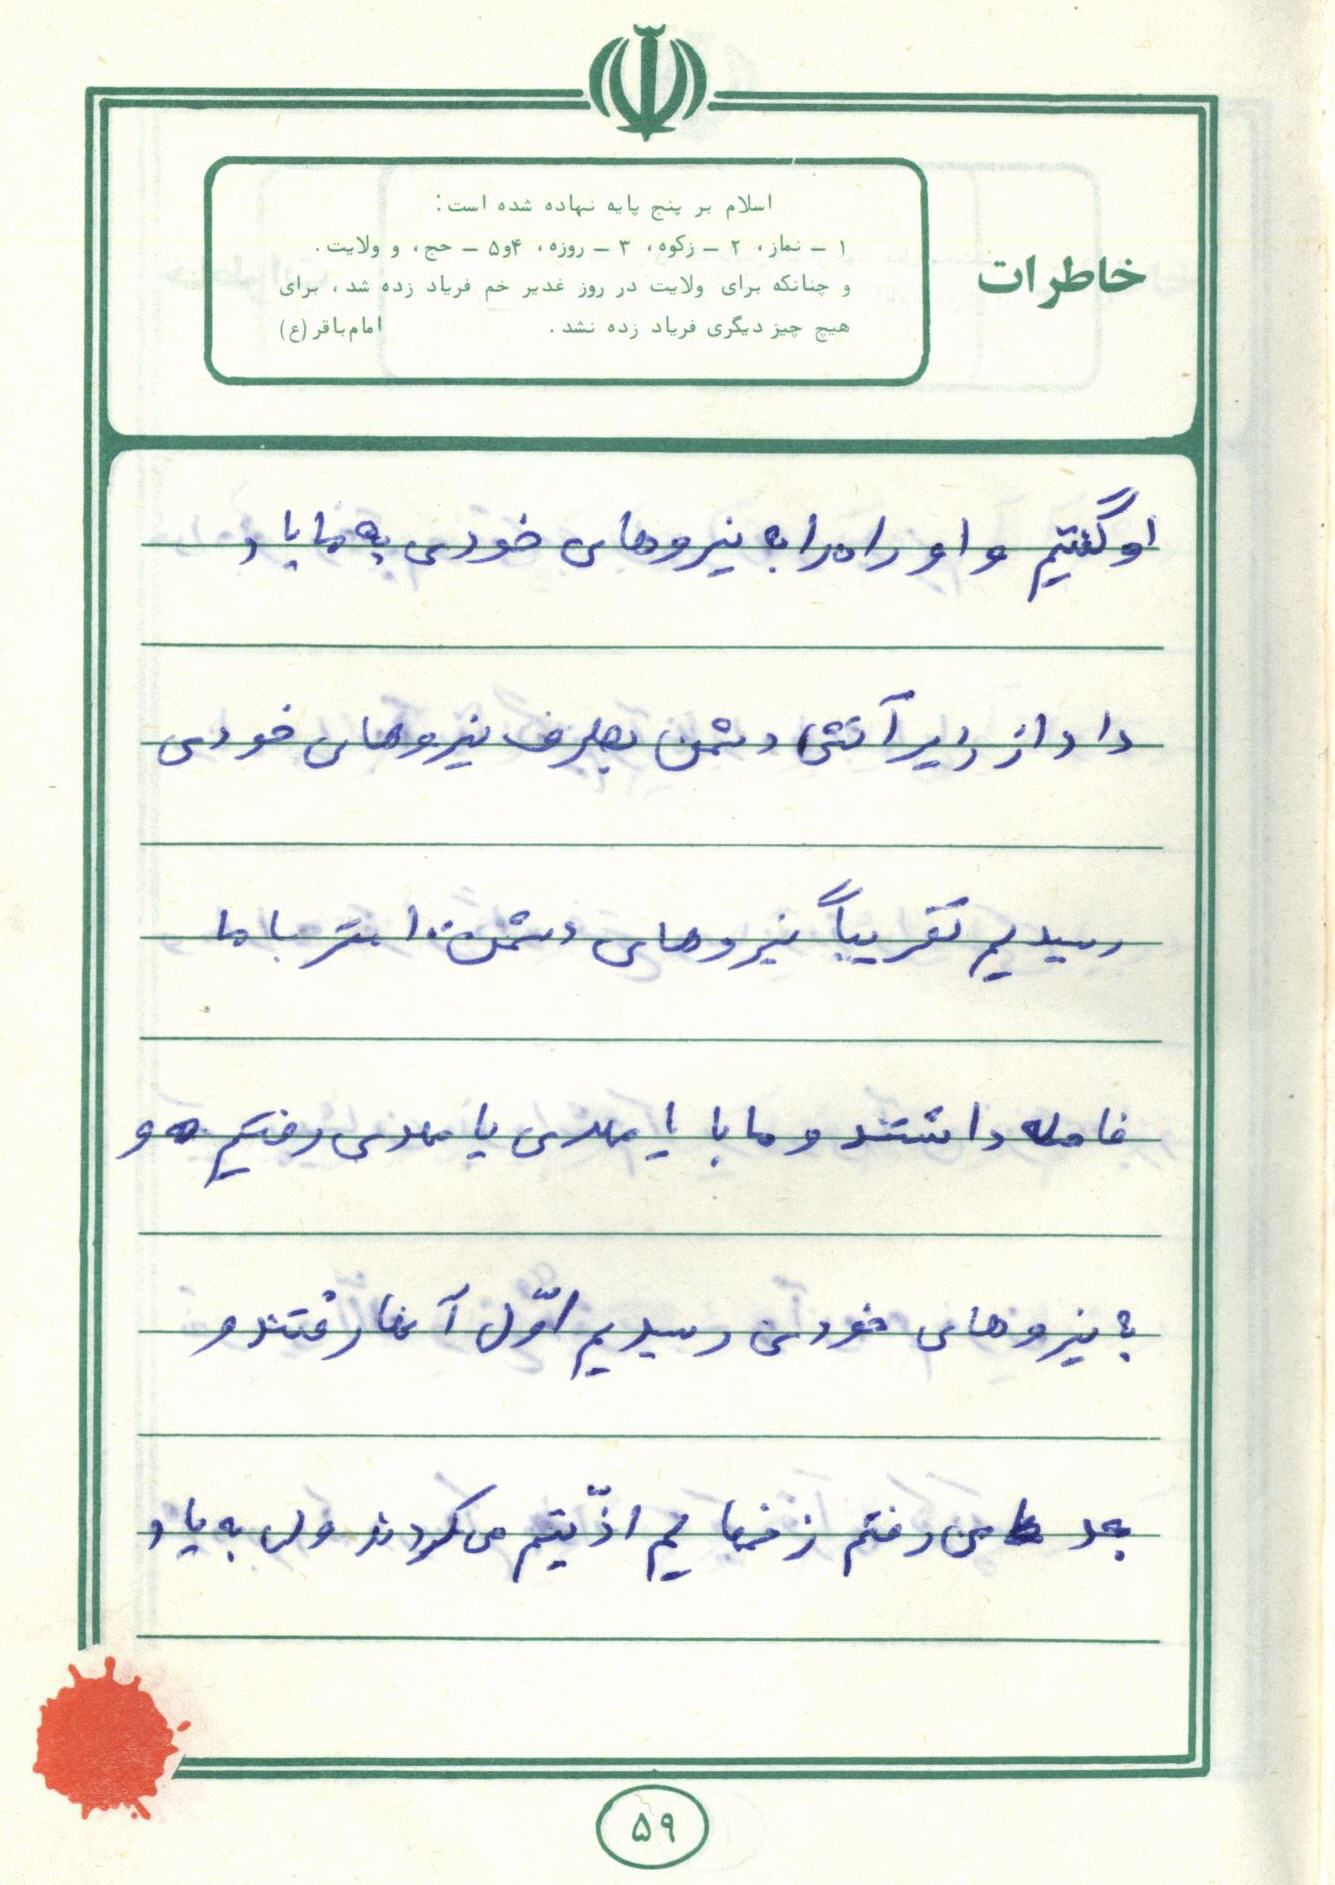 خاطرات
اسلام بر پنج پایه نهاده شده است:
۱ ـ نماز، ۲ ـ زکوه، ۳ ـ روزه، ۴و۵ ـ حج، و ولایت.
و چنانکه برای ولایت در روز غدیر خم فریاد زده شد، برای
هیچ چیز دیگری فریاد زده نشد. امام‌باقر (ع)
او گفتیم و او راه را به نیروهای خودی به ما یاد
داد از زیر آتش دشمن بطرف نیروهای خودی
رسیدیم تقریباً نیروهای دشمن ۱۰ متر با ما
فاصله داشتند و ما با یا مهدی یا مهدی رفتیم و
به نیروهای خودی رسیدیم اوّل آنها رفتند و
بعد من رفتم زخمهایم اذّیتم می‌کردند ولی به یاد
۵۹